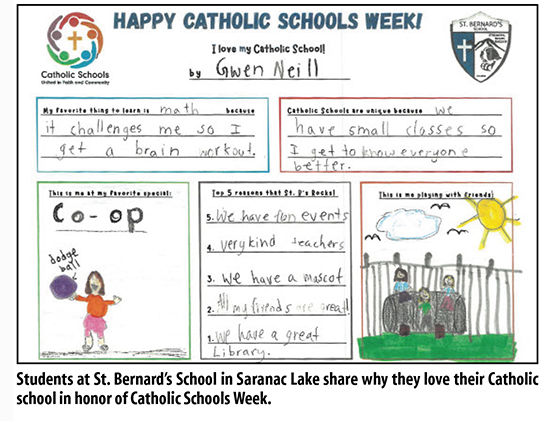 HAPPY CATHOLIC SCHOOLS WEEK!
Catholic Schools
United in Faith and Community
ST. BERNARD'S
SCHOOL
I love my Catholic School!
by Gwen Neill
My favorite thing to learn is math because
it challenges me so I
get a brain workout.
Catholic Schools are unique because we
have small classes so
I get to know everyone
better.
This is me at my favorite special:
Co-op
dodge
ball
Top 5 reasons that St. B's Rocks!
5. We have fun events
4. very kind teachers
3. We have a mascot
2. All my friends are great!
1. We have a great
Library.
This is me playing with friends!
Students at St. Bernard's School in Saranac Lake share why they love their Catholic
school in honor of Catholic Schools Week.